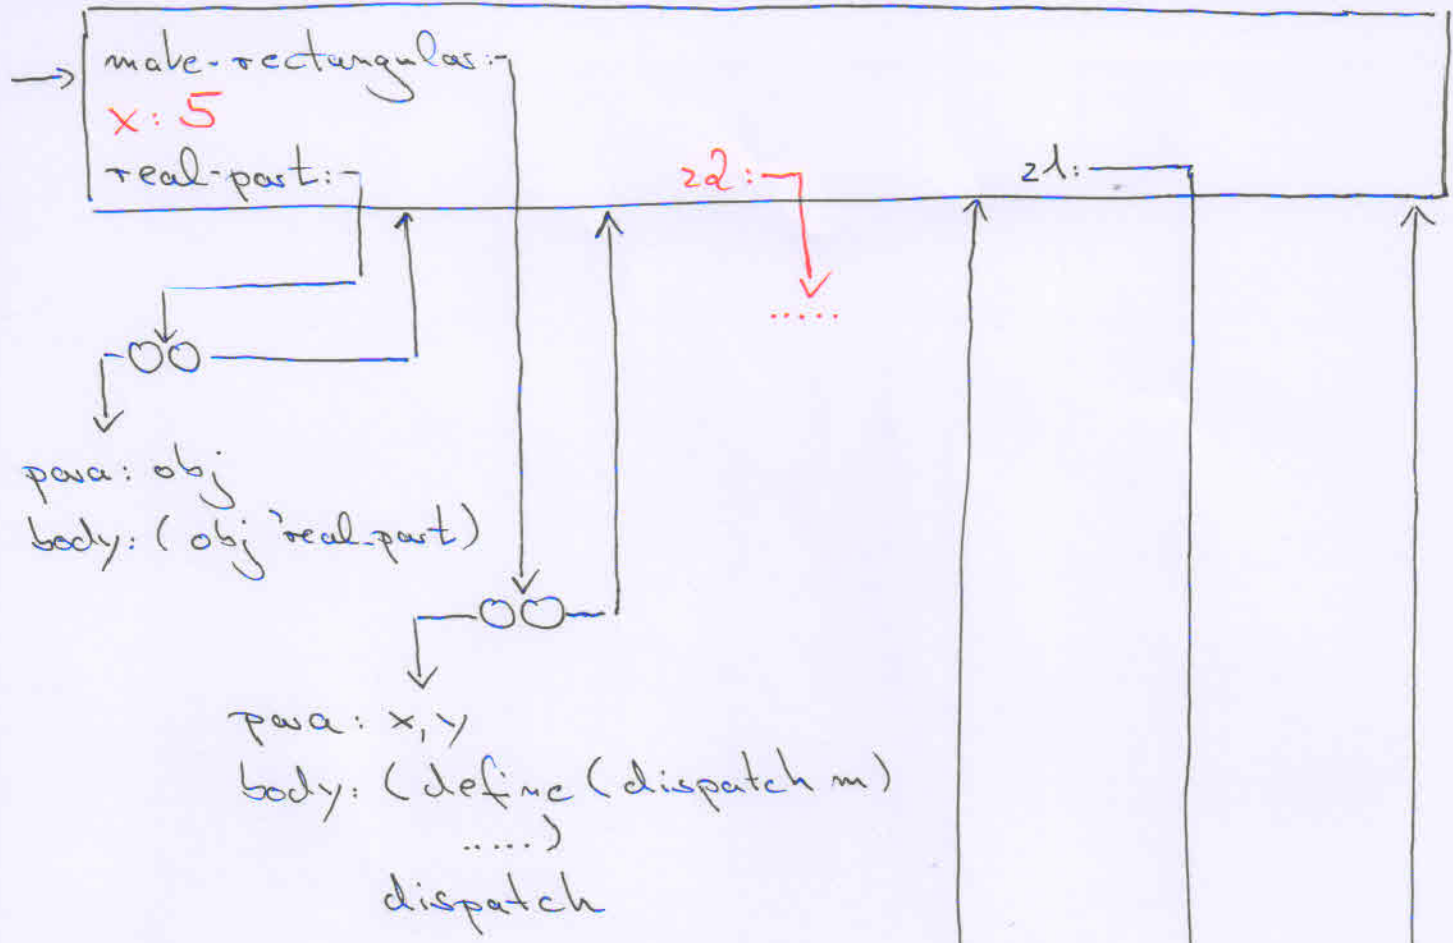 make-rectangular:
x: 5
real-part:
z2:
z1:
.....
para: obj
body: (obj 'real-part)
para: x, y
body: (define (dispatch m)
.....)
dispatch